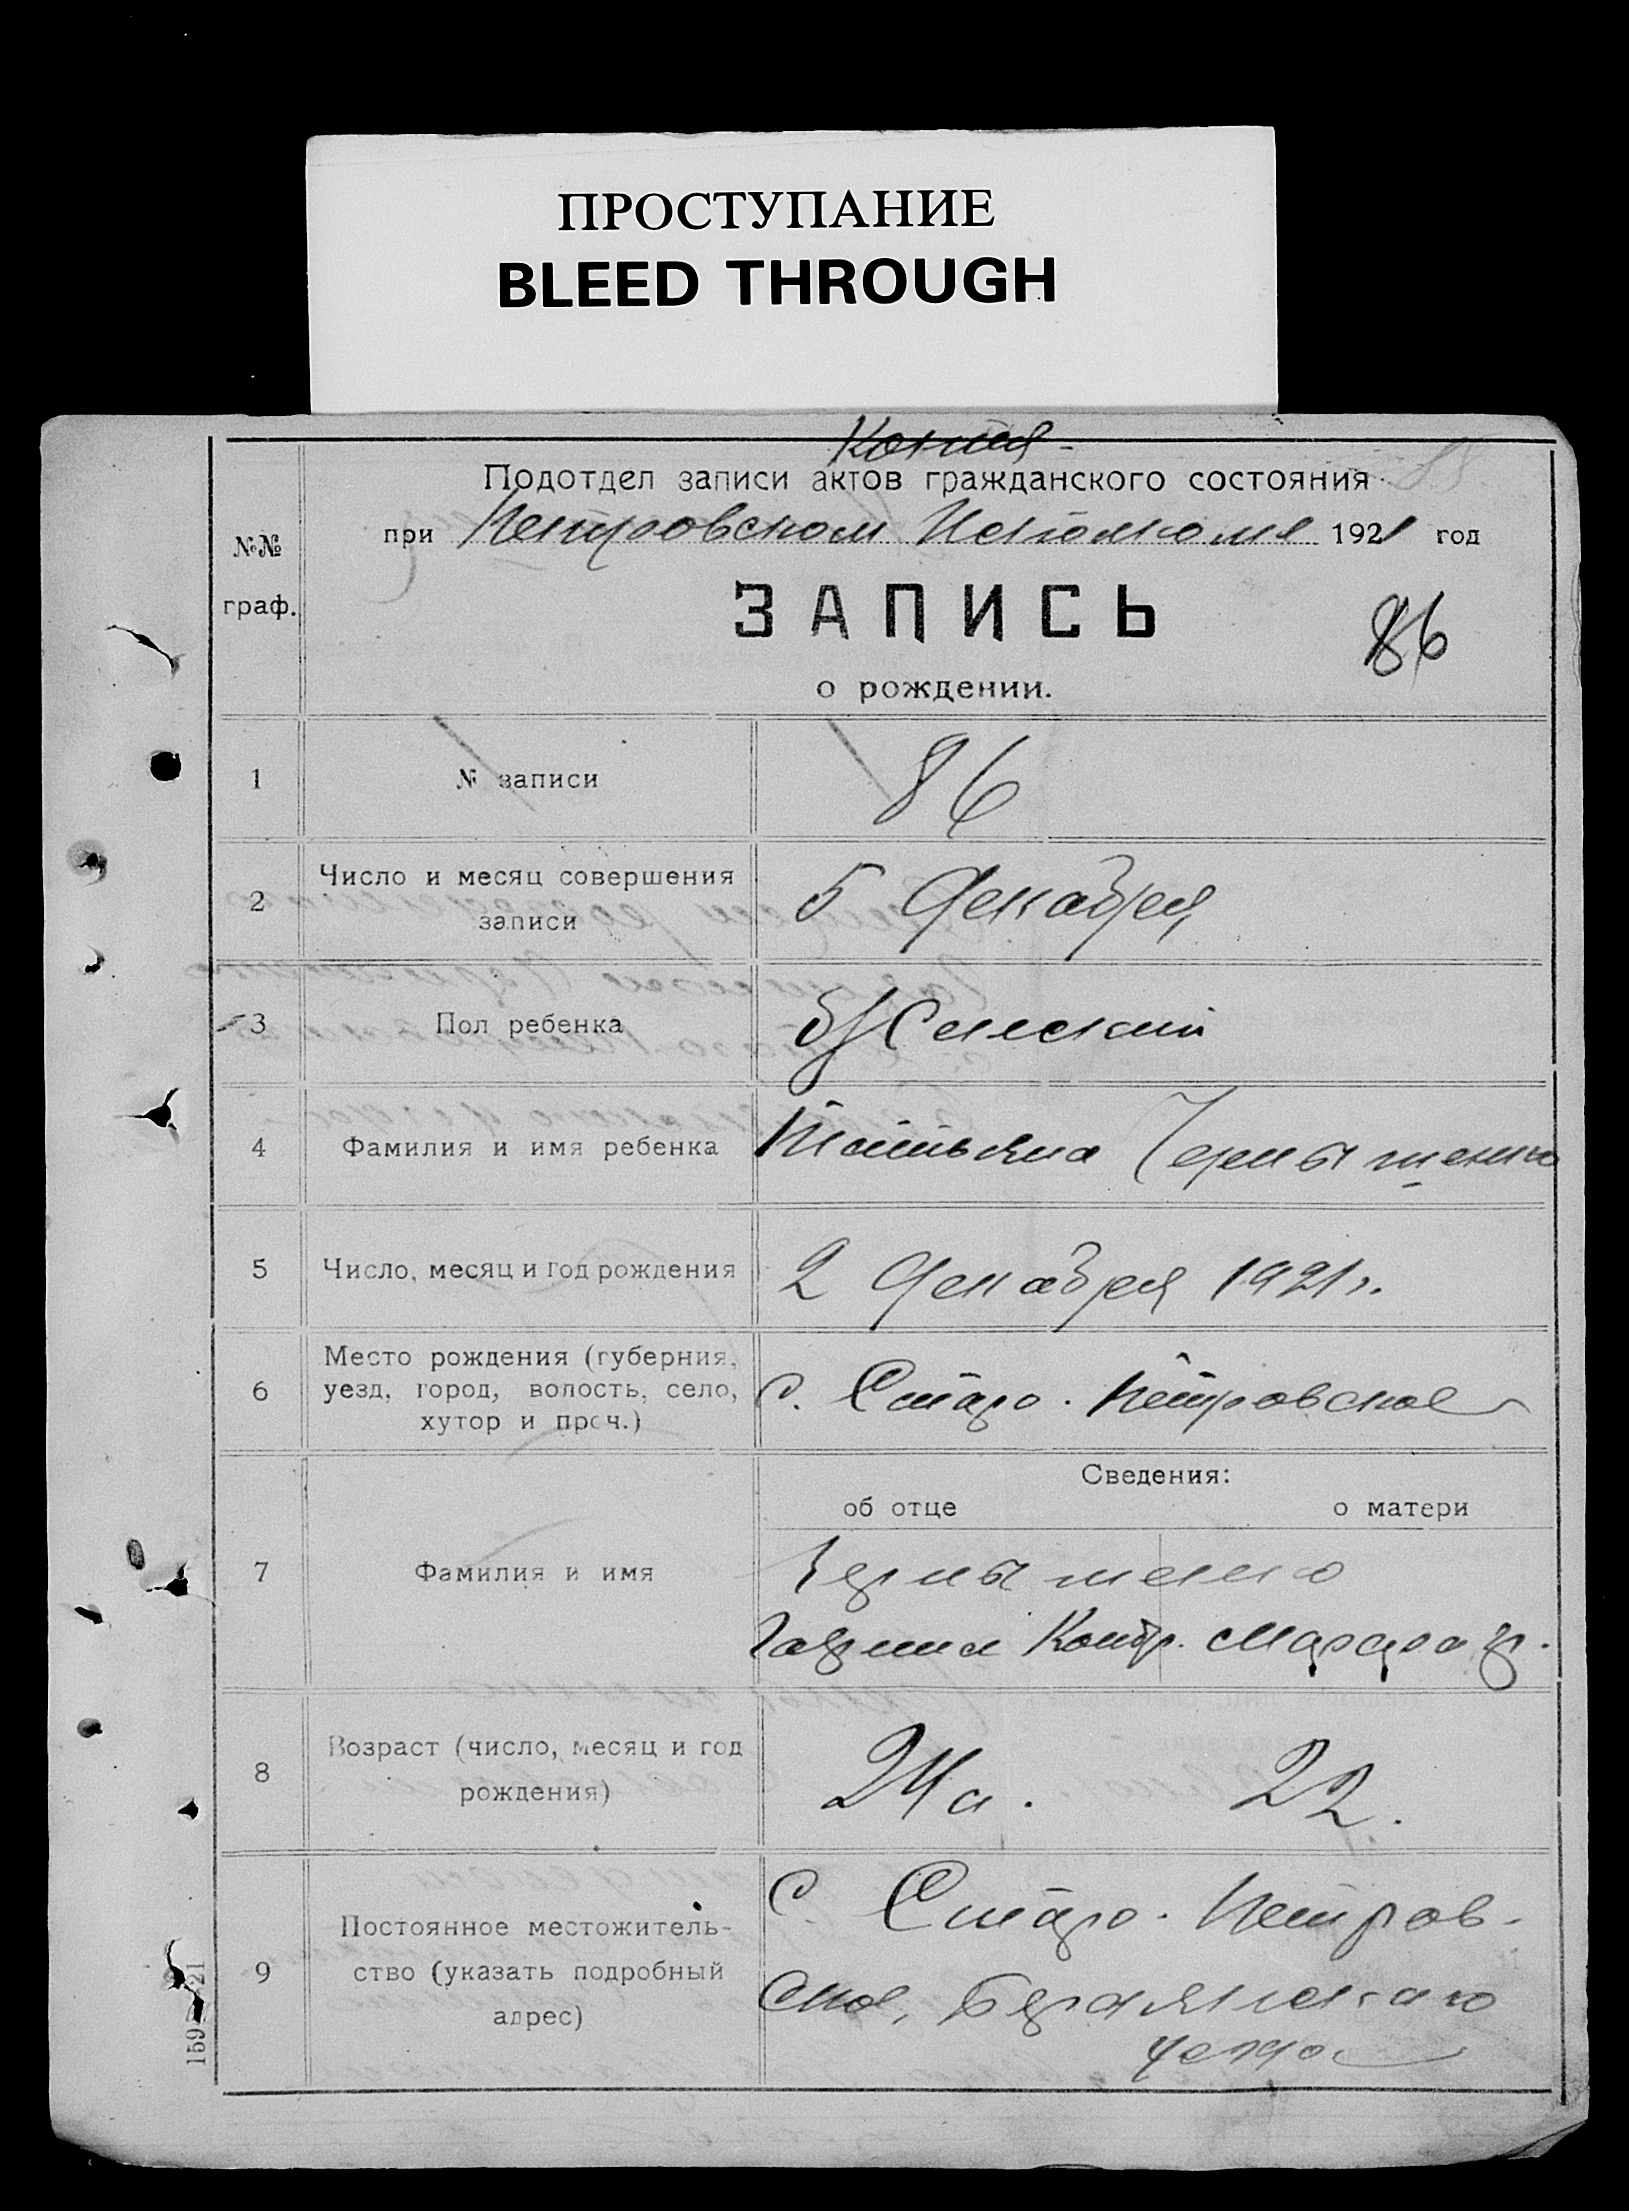 ПРОСТУПАНИЕ
BLEED THROUGH
Копия
Подотдел записи актов гражданского состояния
при Петровском Исполкоме 1921 год
№№
граф.
ЗАПИСЬ
86
о рождении.
1 № записи 86
2 Число и месяц совершения
записи
5 Декабря
3 Пол ребенка Женский
4 Фамилия и имя ребенка Татьяна Чернышенко
5 Число, месяц и год рождения 2 Декабря 1921 г.
6 Место рождения (губерния,
уезд, город, волость, село,
хутор и проч.)
с. Старо-Петровское
Сведения:
об отце о матери
7 Фамилия и имя Чернышенко
Гавриил Кондр.
8 Возраст (число, месяц и год
рождения)
24 л. 22.
9 Постоянное местожитель-
ство (указать подробный
адрес)
с. Старо-Петров-
ское, Бердянского
уезда
159 21